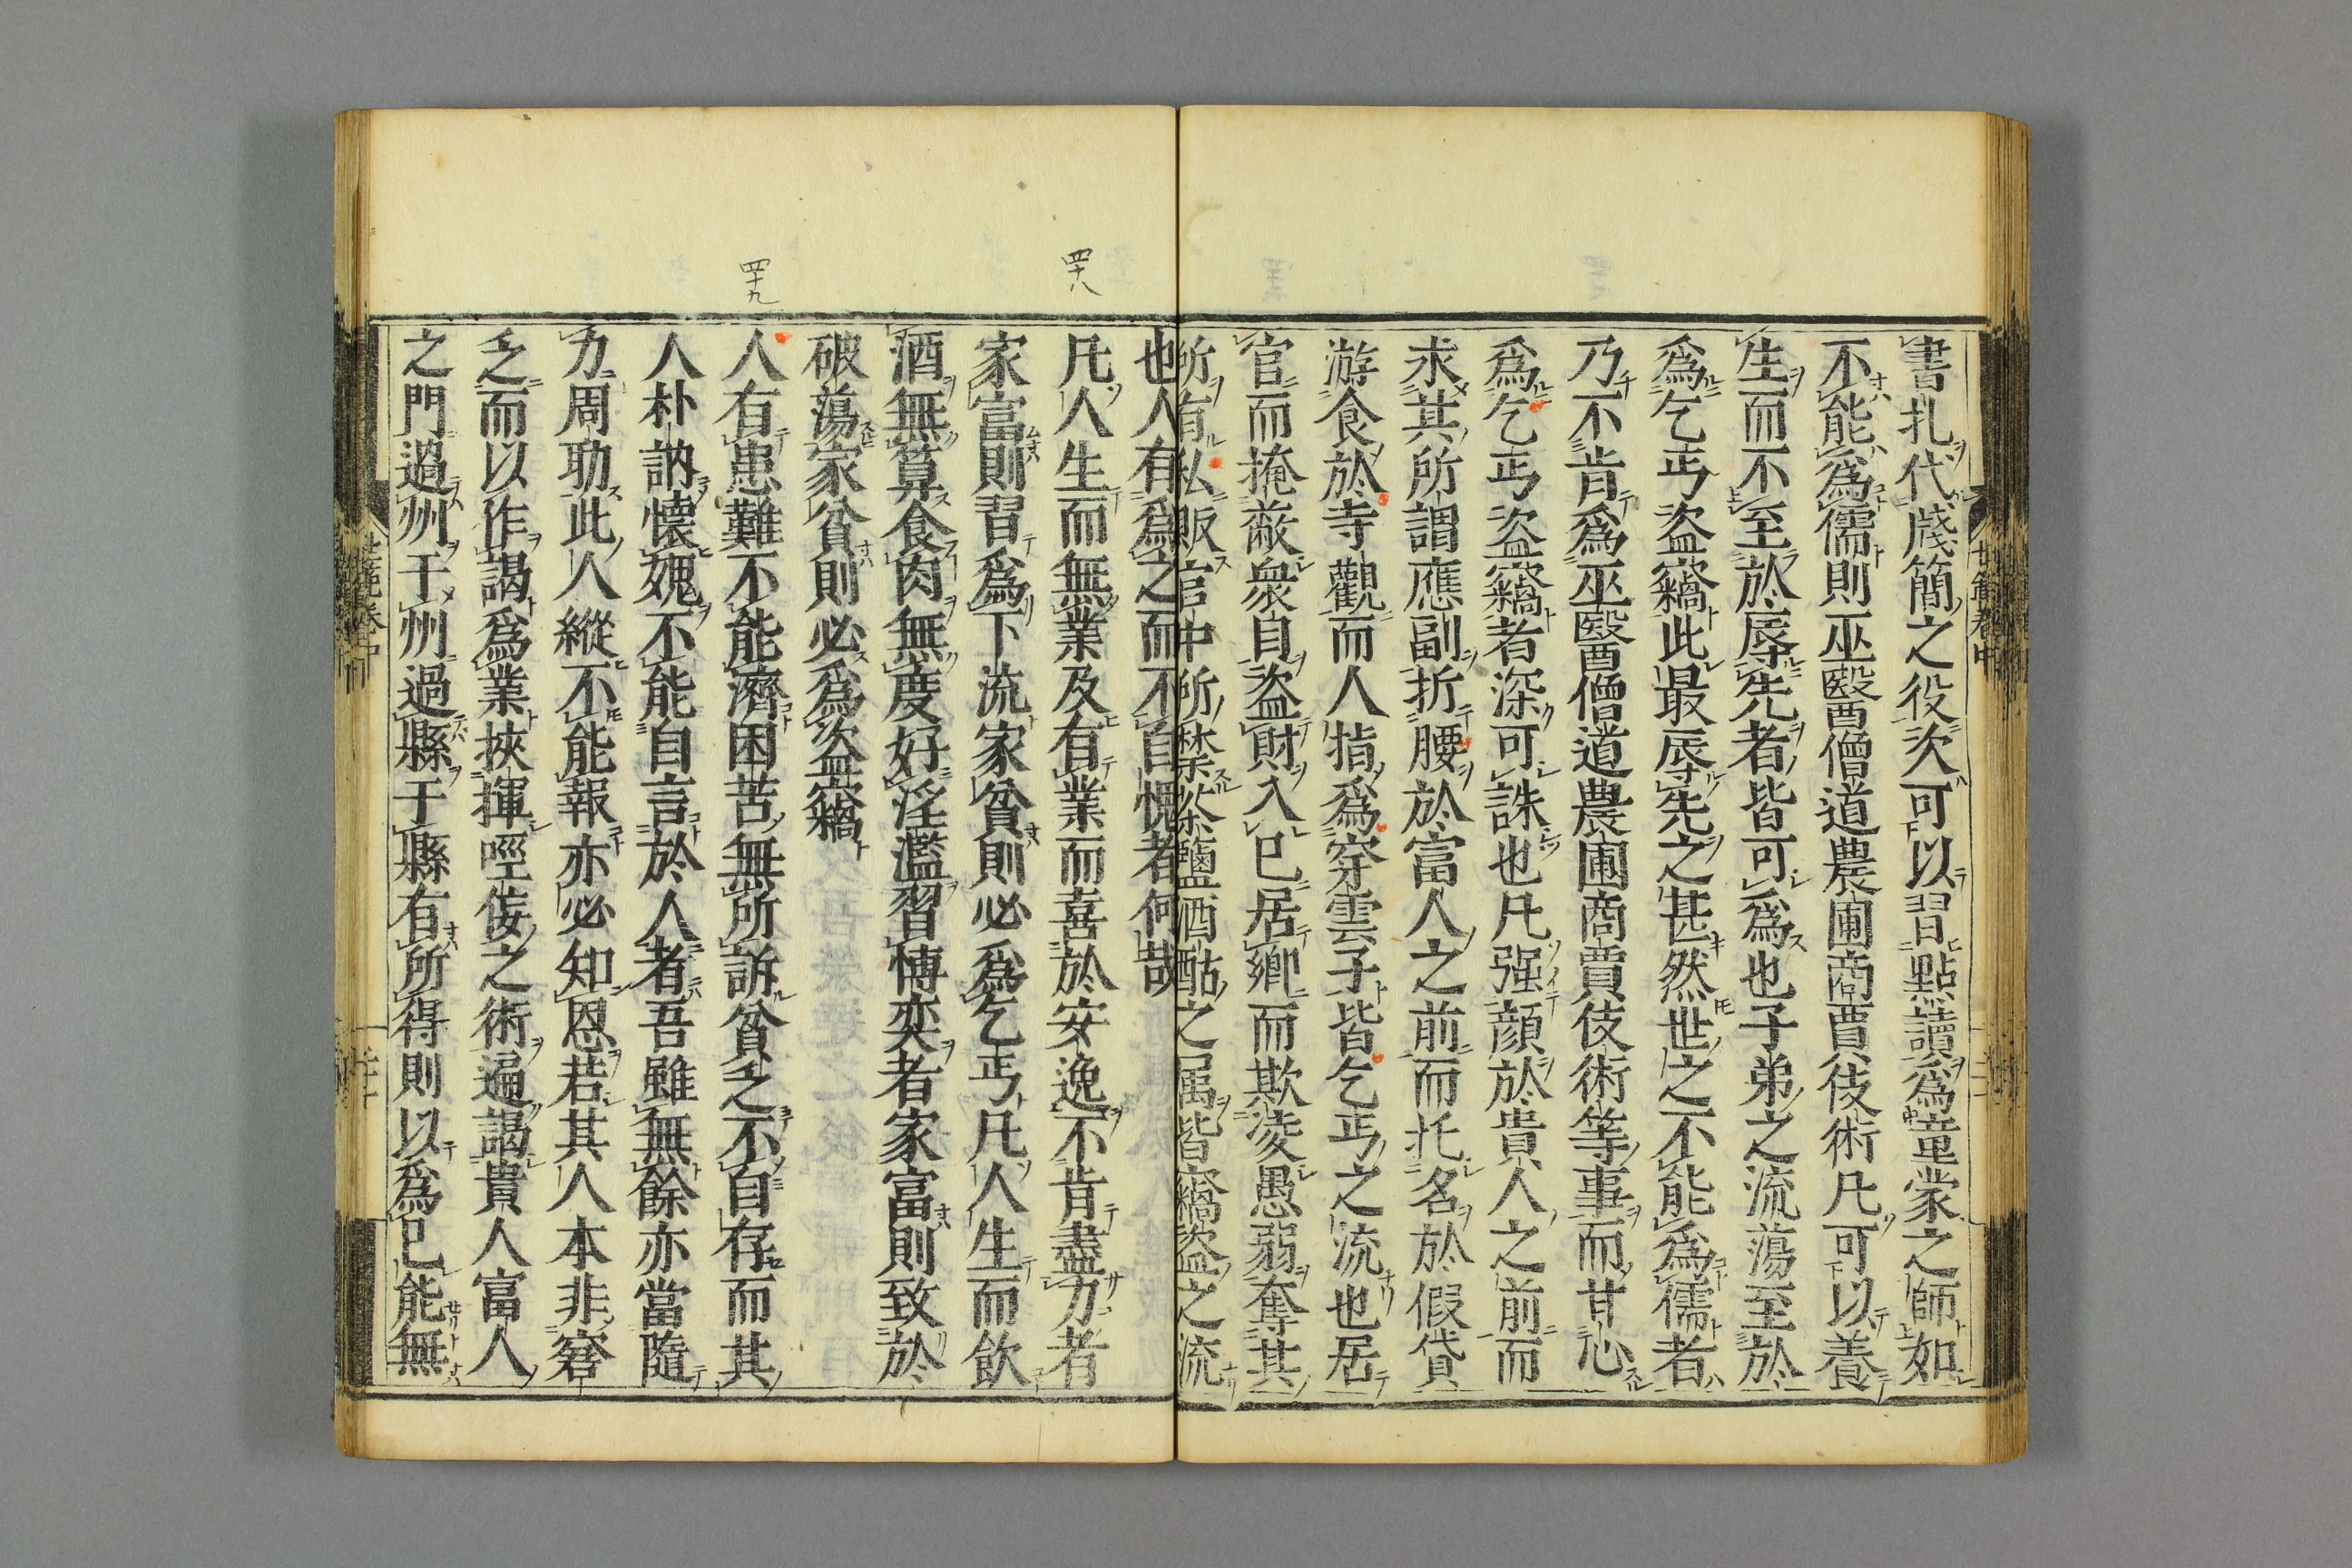 書札代牋簡之役次可以習點讀爲童蒙之師如
不能爲儒則巫醫僧道農圃商賈伎術凡可以養
生而不至於辱先者皆可爲也子弟之流蕩至於
爲乞丐盜竊此最辱先之甚然世之不能爲儒者
乃不肯爲巫醫僧道農圃商賈伎術等事而甘心
爲乞丐盜竊者深可誅也凡强顔於貴人之前而
求其所謂應副折腰於富人之前而托名於假貸
游食於寺觀而人指爲穿雲子皆乞丐之流也居
官而掩蔽衆自盜財入己居鄉而欺凌愚弱奪其
所有私販官中所禁茶鹽酒酤之属皆竊盜之流
也人有爲之而不自愧者何哉
四十八
凡人生而無業及有業而喜於安逸不肯盡力者
家富則習爲下流家貧則必爲乞丐凡人生而飲
酒無算食肉無度好淫濫習博奕者家富則致於
破蕩家貧則必爲盜竊
四十九
人有患難不能濟困苦無所訴貧乏不自存而其
人朴訥懐愧不能自言於人者吾雖無餘亦當隨
力周助此人縱不能報亦必知恩若其人本非窘
乏而以作謁爲業挾揮㘬偯之術遍謁貴人富人
之門過州干州過縣干縣有所得則以爲己能無
世範卷中